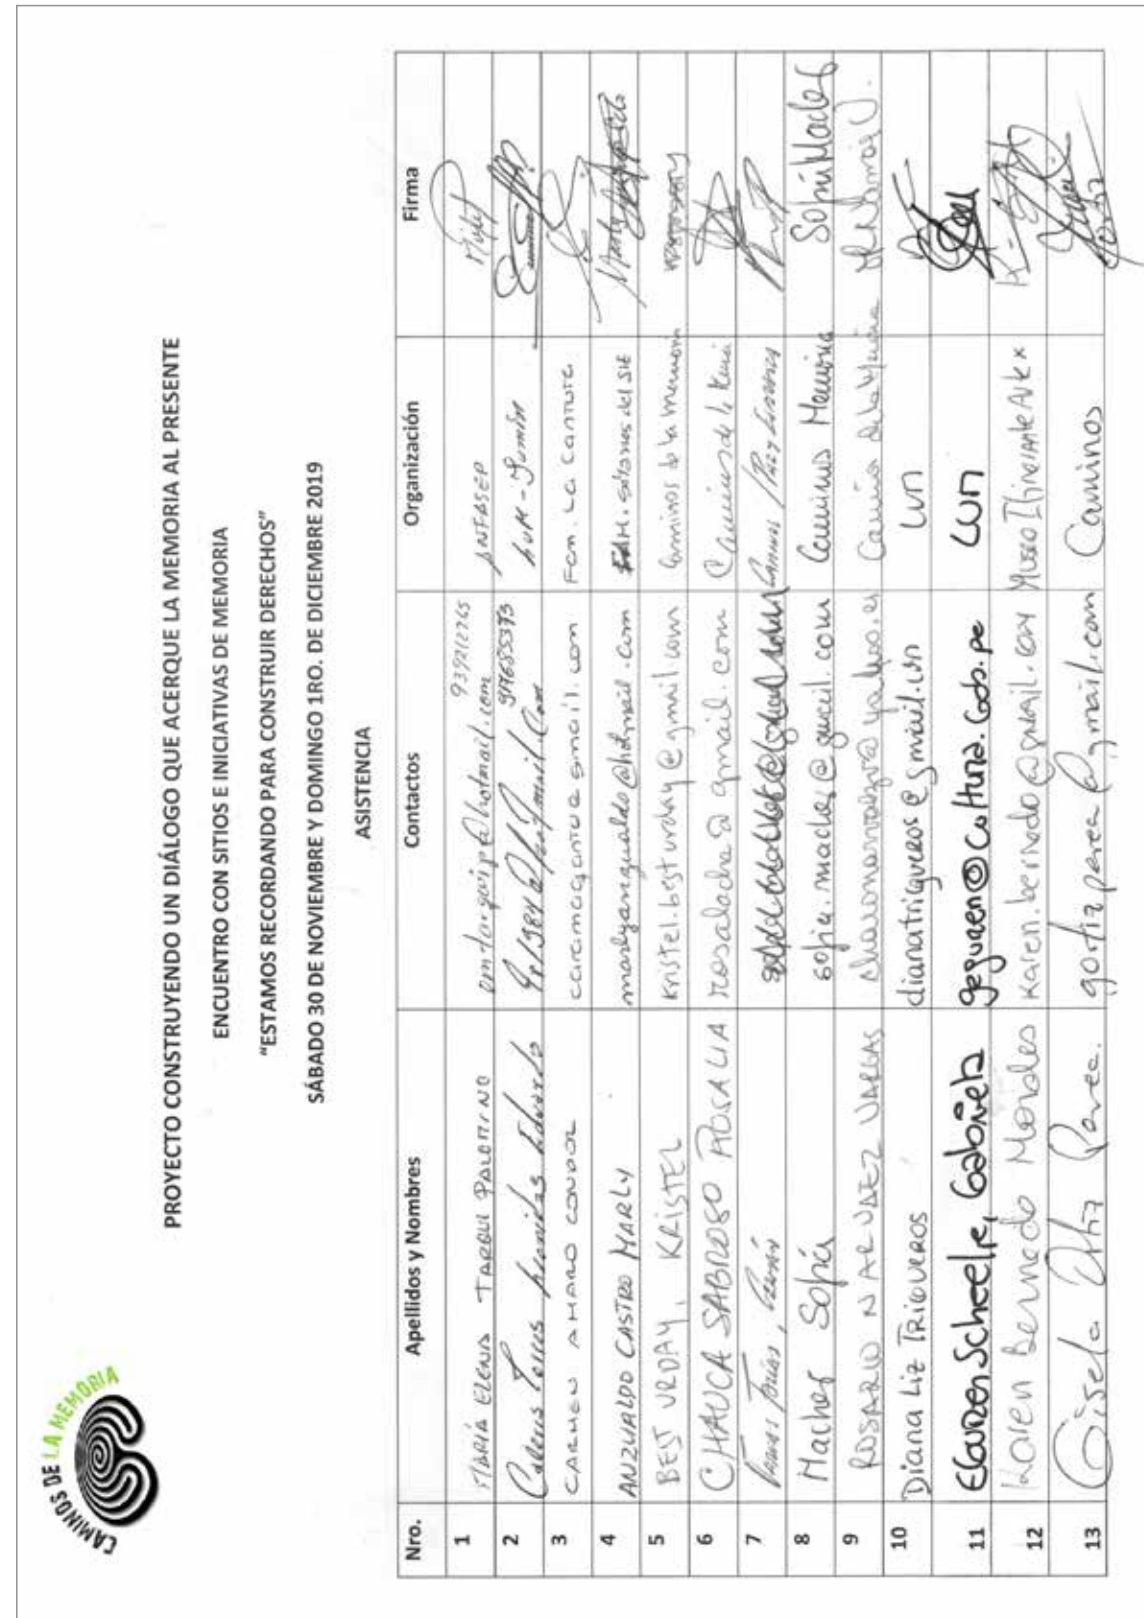 CAMINOS DE LA MEMORIA
PROYECTO CONSTRUYENDO UN DIÁLOGO QUE ACERQUE LA MEMORIA AL PRESENTE
ENCUENTRO CON SITIOS E INICIATIVAS DE MEMORIA
"ESTAMOS RECORDANDO PARA CONSTRUIR DERECHOS"
SÁBADO 30 DE NOVIEMBRE Y DOMINGO 1RO. DE DICIEMBRE 2019
ASISTENCIA
Nro. Apellidos y Nombres Contactos Organización Firma
1 MARÍA ELENA TARQUI PALOMINO 939212265
2 LUM - Junín
3 CARMEN AMARO CONDOR Fam. La Cantuta
4 ANZUALDO CASTRO MARLY marlyanzualdo@hotmail.com sótanos del SIE
5 BEST URDAY, KRISTEL kristel.besturday@gmail.com Caminos de la memoria
6 CHAUCA SABROSO ROSALIA rosalacha@gmail.com Caminos de la
7
8 Macher Sofía sofia.macher@gmail.com Caminos Memoria Sofía Macher
9 ROSARIO NARVAEZ VARGAS Camino de la
10 Diana Liz TRIGUEROS dianatrigueros@gmail.com LUM
11 Eguren Scheelje, Gabriela geguren@cultura.gob.pe LUM
12 Karen Bernedo Morales karen.bernedo@gmail.com Museo Itinerante Arte x
13 Gisela Ortiz Perea. gortizperea@gmail.com Caminos